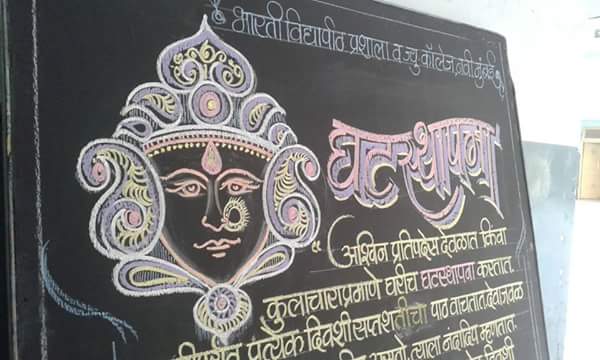 भारती विद्यापीठ प्रशाला व ज्यु कॉलेज, नवी मुंबई
घटस्थापना
अश्विन प्रतिपदेस देवळात किंवा
कुलाचाराप्रमाणे घरीच घटस्थापना करतात.
प्रत्येक दिवशी सप्तशतीचा पाठ वाचतात. देवाजवळ
त्याला नंदादिप म्हणतात.